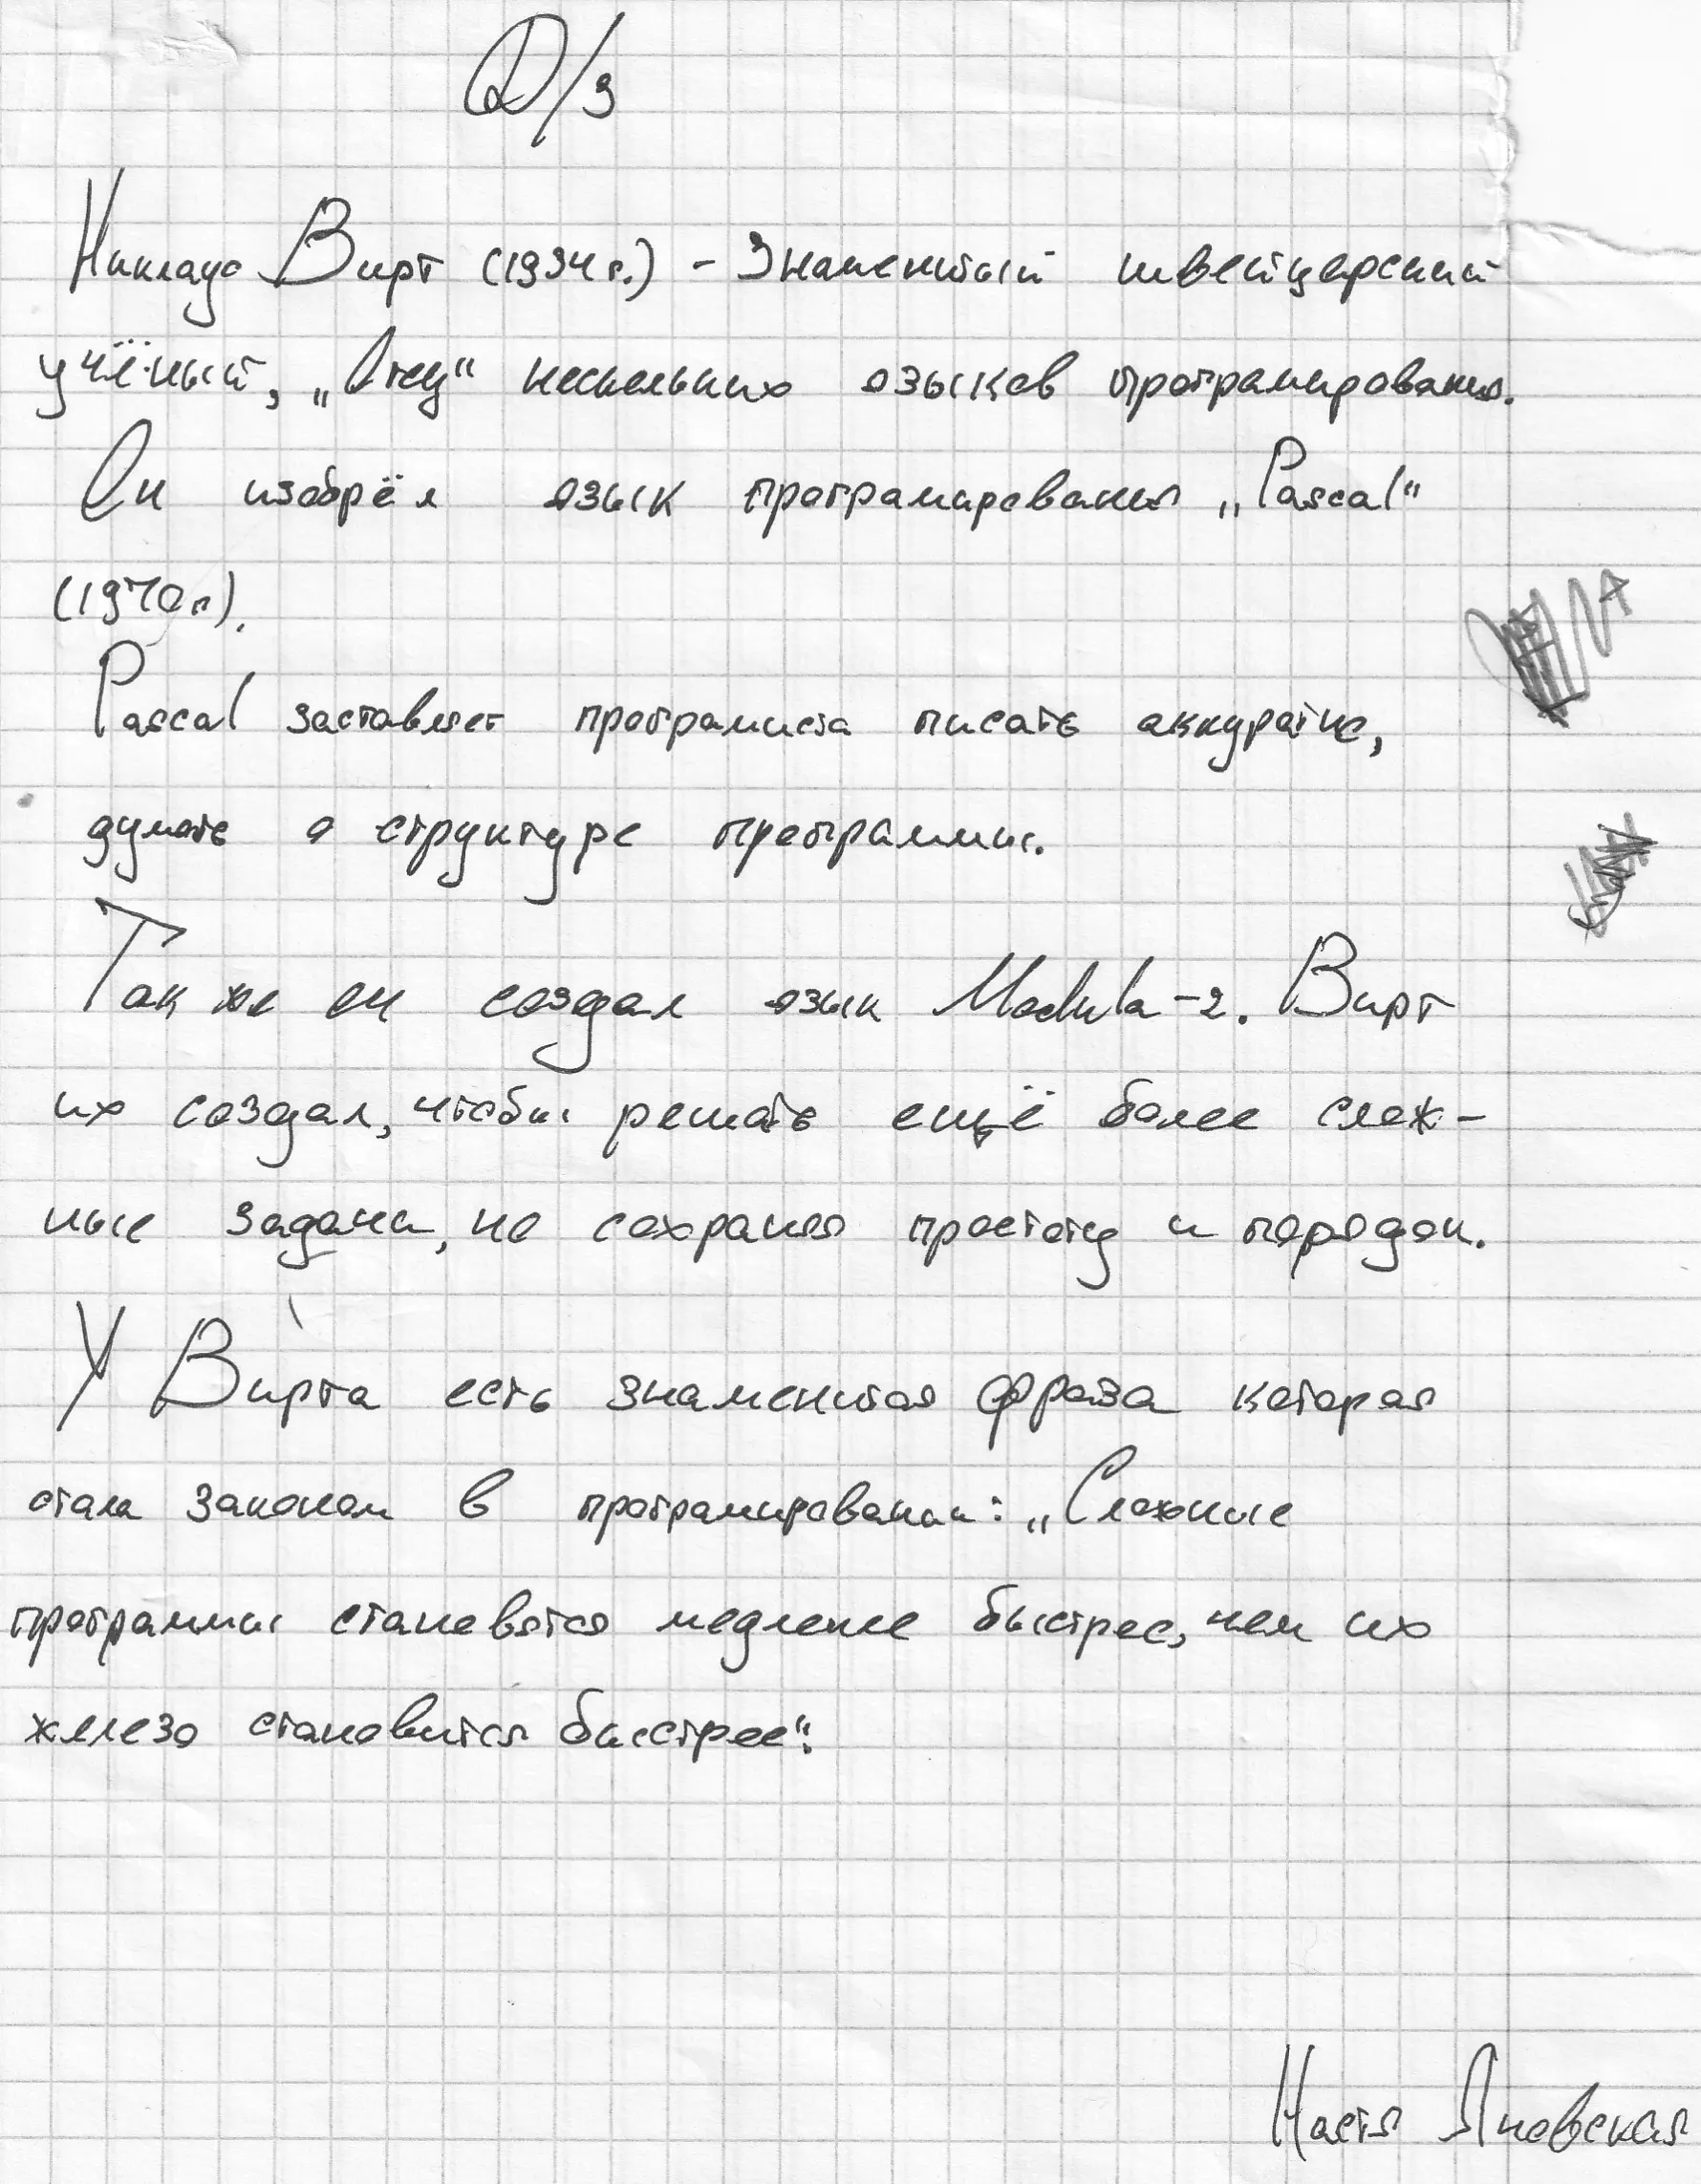 Д/з
Никлаус Вирт (1934 г.) - Знаменитый швейцарский
учёный, „Отец“ нескольких языков програмирования.
Он изобрёл язык програмирования „Pascal“
(1970г).
Pascal заставляет програмиста писать аккуратно,
думать о структуре программы.
Так же он создал язык Modula-2. Вирт
их создал, чтобы решать ещё более слож-
ные задачи, но сохраняя простоту и порядок.
У Вирта есть знаменитая фраза которая
стала законом в програмировании: „Сложные
программы становятся медленее быстрее, чем их
железо становится быстрее“.
Настя Яновская